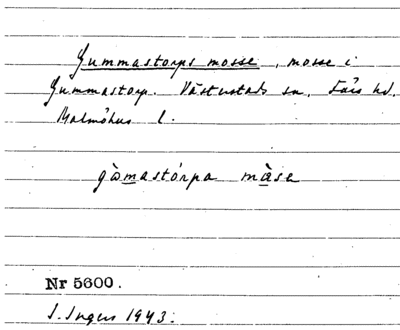 Gummastorps mosse, mosse i
Gummastorp. Västustads sn. Färs hd.
Malmöhus l.
gòmastórpa màse
Nr 5600.
I. Ingers 1943.